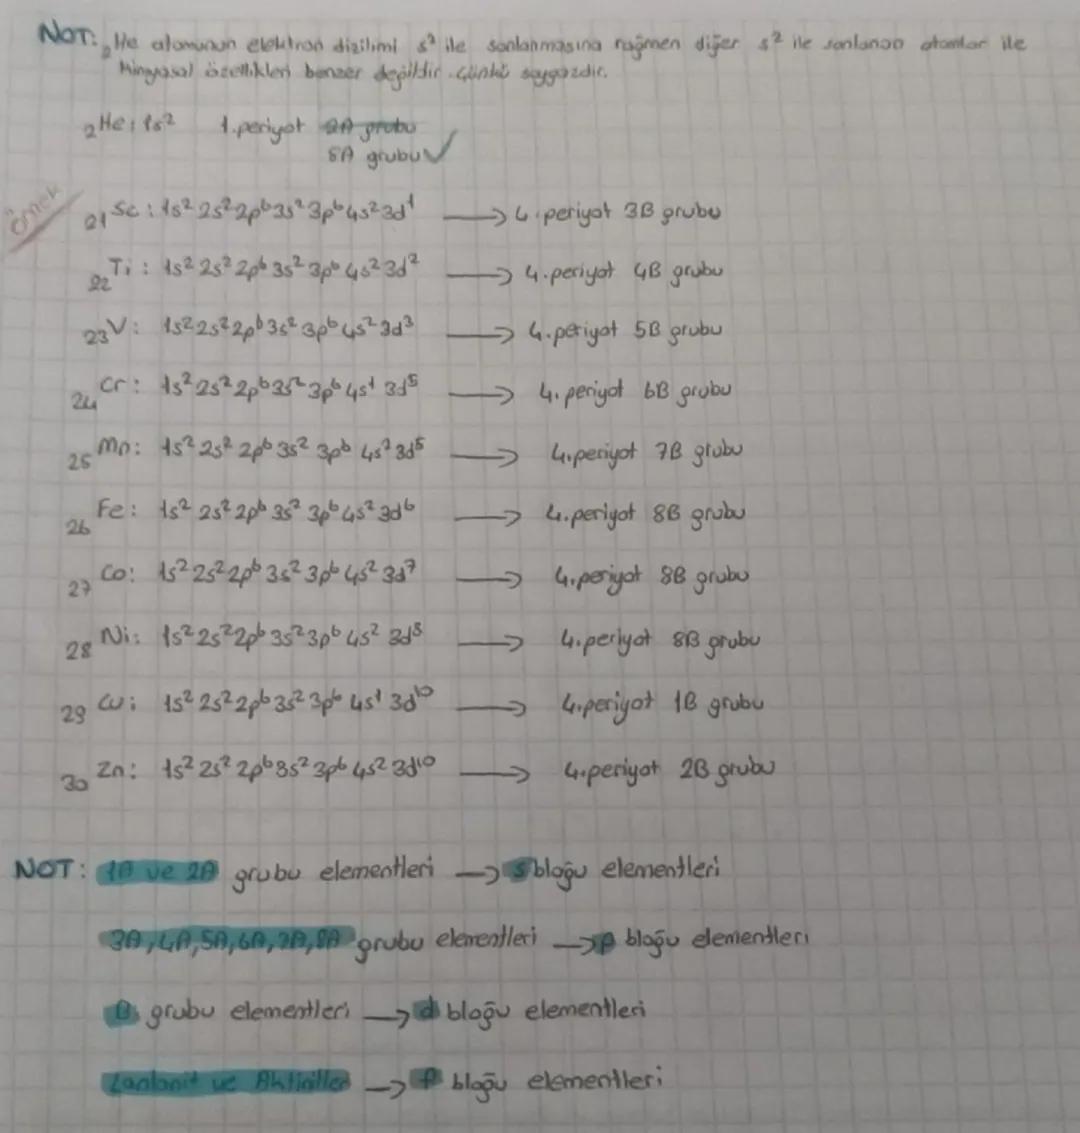 NOT: ₂He atomunun elektron dizilimi s² ile sonlanmasına rağmen diğer s² ile sonlanan atomlar ile
kimyasal özellikleri benzer değildir. Çünkü soygazdır.
₂He: 1s² 1.periyot 2A grubu
8A grubu ✓
Örnek
₂₁Sc: 1s² 2s² 2p⁶ 3s² 3p⁶ 4s² 3d¹ → 4.periyot 3B grubu
₂₂Ti: 1s² 2s² 2p⁶ 3s² 3p⁶ 4s² 3d² → 4.periyot 4B grubu
₂₃V: 1s² 2s² 2p⁶ 3s² 3p⁶ 4s² 3d³ → 4.periyot 5B grubu
₂₄Cr: 1s² 2s² 2p⁶ 3s² 3p⁶ 4s¹ 3d⁵ → 4.periyot 6B grubu
₂₅Mn: 1s² 2s² 2p⁶ 3s² 3p⁶ 4s² 3d⁵ → 4.periyot 7B grubu
₂₆Fe: 1s² 2s² 2p⁶ 3s² 3p⁶ 4s² 3d⁶ → 4.periyot 8B grubu
₂₇Co: 1s² 2s² 2p⁶ 3s² 3p⁶ 4s² 3d⁷ → 4.periyot 8B grubu
₂₈Ni: 1s² 2s² 2p⁶ 3s² 3p⁶ 4s² 3d⁸ → 4.periyot 8B grubu
₂₉Cu: 1s² 2s² 2p⁶ 3s² 3p⁶ 4s¹ 3d¹⁰ → 4.periyot 1B grubu
₃₀Zn: 1s² 2s² 2p⁶ 3s² 3p⁶ 4s² 3d¹⁰ → 4.periyot 2B grubu
NOT: 1A ve 2A grubu elementleri → s bloğu elementleri
3A, 4A, 5A, 6A, 7A, 8A grubu elementleri → p bloğu elementleri
B grubu elementleri → d bloğu elementleri
Lantanit ve Aktinitler → f bloğu elementleri